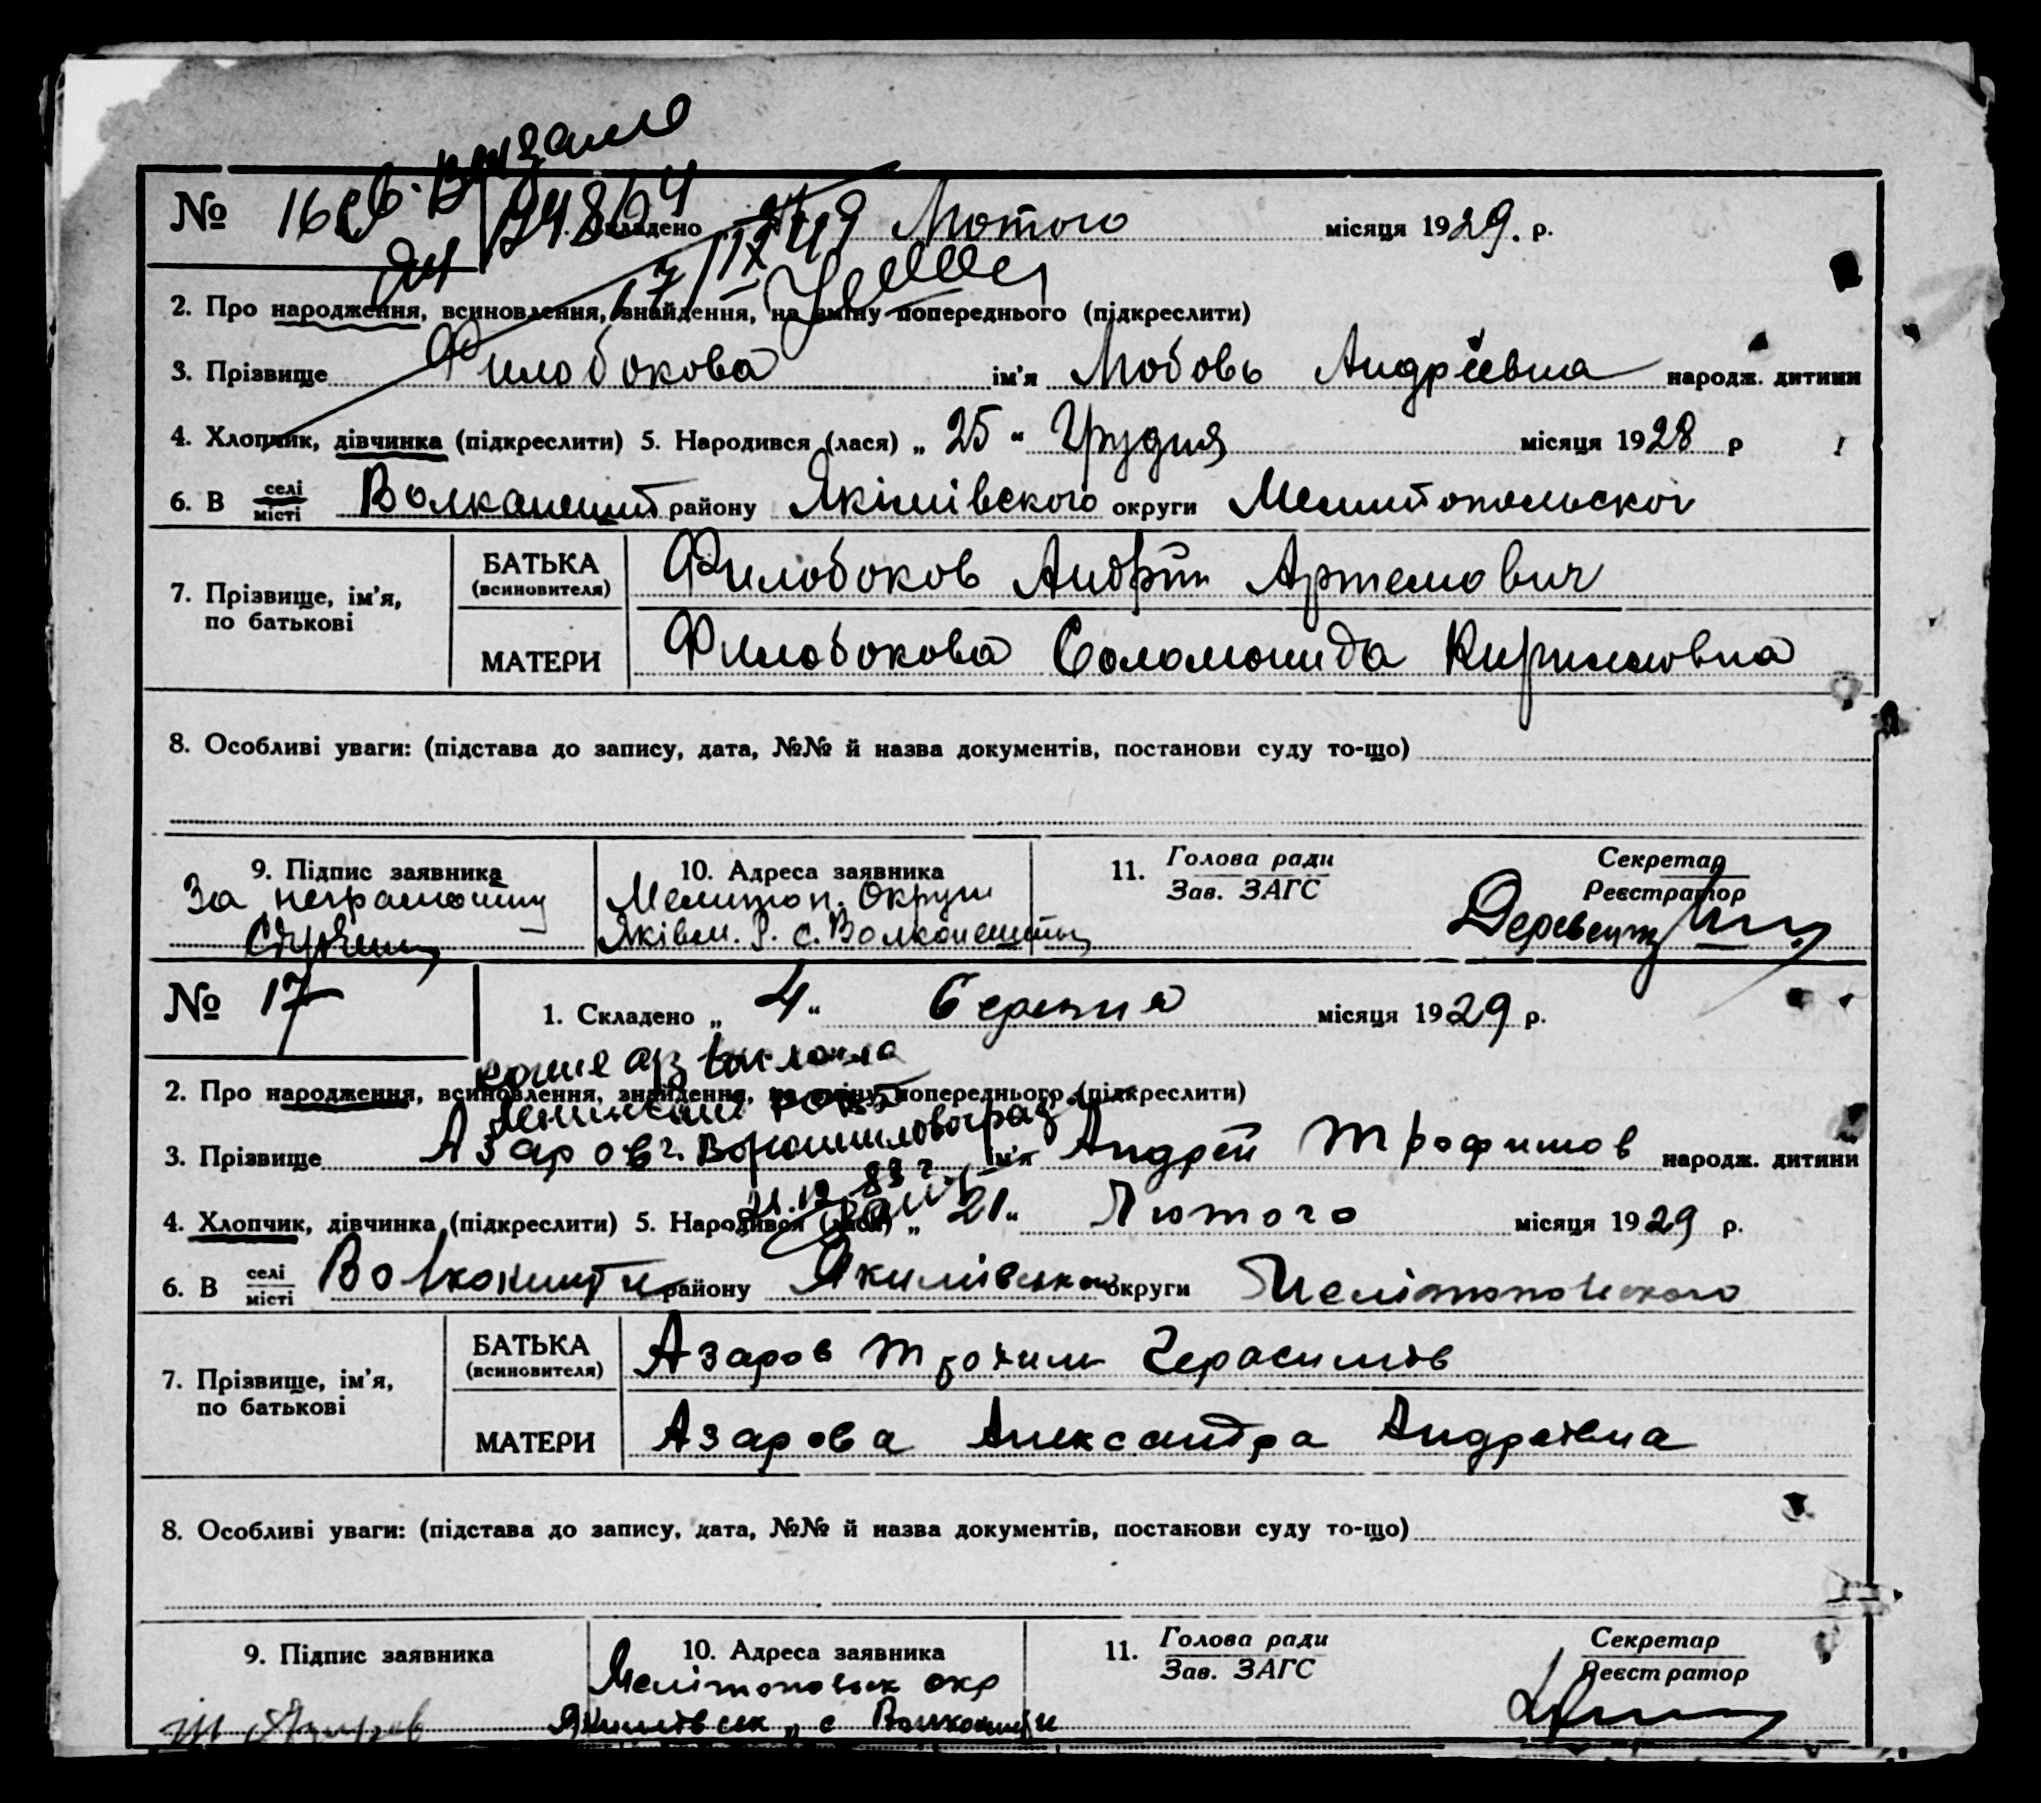 № 16 Складено Лютого місяця 1929. р.
2. Про народження, всиновлення, знайдення, на зміну попереднього (підкреслити)
3. Прізвище Филобокова ім'я Любовь Андрéевна народж. дитини
4. Хлопчик, дівчинка (підкреслити) 5. Народився (лася) „ 25 “ Грудня місяця 1928 р
6. В селі місті Волканешт району Якімівского округи Мелитопольскоі
7. Прізвище, ім'я, по батькові
БАТЬКА (всиновителя) Филобоков Андрій Артемович
МАТЕРИ Филобокова Соломонида Кириловна
8. Особливі уваги: (підстава до запису, дата, №№ й назва документів, постанови суду то-що)
9. Підпис заявника 10. Адреса заявника 11. Голова ради Зав. ЗАГС Секретар Реєстратор
За неграмотну Мелитоп. Округи
Яківм. Р. с. Волконешты
№ 17 1. Складено „ 4 “ Серпня місяця 1929 р.
2. Про народження, всиновлення, знайдення, на зміну попереднього (підкреслити)
г. Ворошиловоград
3. Прізвище Азаров ім'я Андрей Трофимов народж. дитини
4. Хлопчик, дівчинка (підкреслити) 5. Народився (лася) „ 21 “ Лютого місяця 1929 р.
6. В селі місті Волконешти району Якимівськ округи Мелітопольского
7. Прізвище, ім'я, по батькові
БАТЬКА (всиновителя) Азаров Трохим Герасимов
МАТЕРИ Азарова Александра Андреівна
8. Особливі уваги: (підстава до запису, дата, №№ й назва документів, постанови суду то-що)
9. Підпис заявника 10. Адреса заявника 11. Голова ради Зав. ЗАГС Секретар Реєстратор
Мелітопольск окр
Якимівск с Волконешти